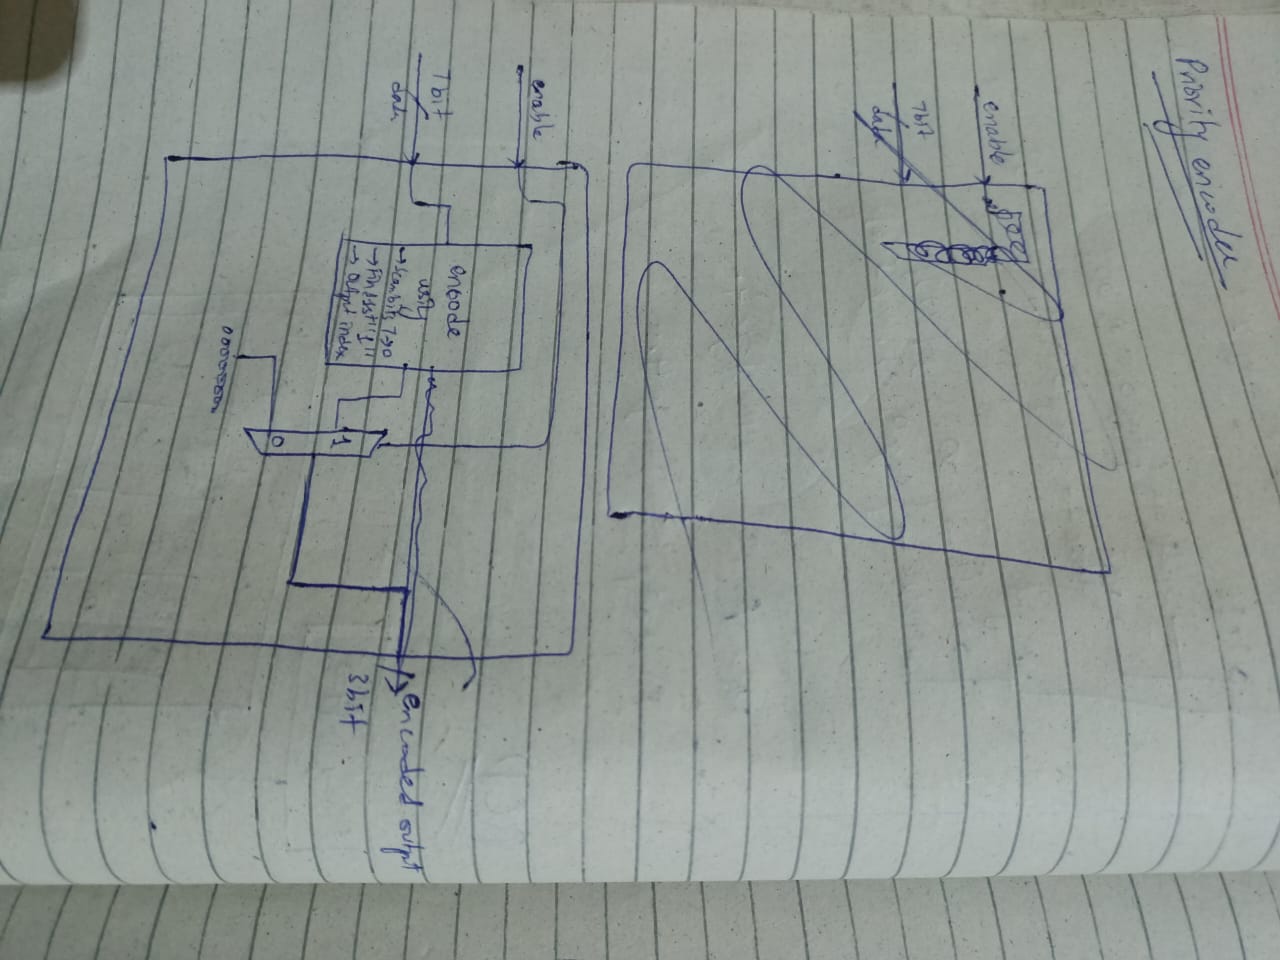 Priority encoder
enable
7bit
data
enable
7bit
data
encode
using
→ scan bits 7→0
→ Find 1st "1"
→ Output index
1
0
encoded output
3bit